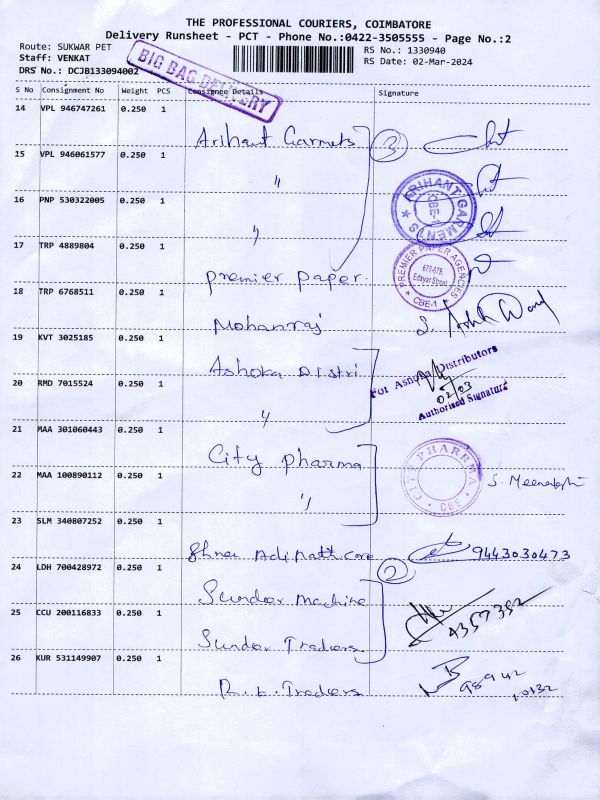 THE PROFESSIONAL COURIERS, COIMBATORE
Delivery Runsheet - PCT - Phone No.:0422-3505555 - Page No.:2
Route: SUKWAR PET
RS No.: 1330940
Staff: VENKAT
RS Date: 02-Mar-2024
DRS No.: DCJB133094002
BIG BAG DELIVERY
S No Consignment No Weight PCS Consignee Details Signature
14 VPL 946747261 0.250 1
Arihant Garmets 3
15 VPL 946061577 0.250 1
"
16 PNP 530322005 0.250 1
"
ARIHANT GARMENTS
CBE-1
17 TRP 4889804 0.250 1
Premier Paper.
PREMIER PAPER AGENCIES
678-679,
Edayar Street
CBE-1
18 TRP 6768511 0.250 1
Mohanraj
19 KVT 3025185 0.250 1
Ashoka Distri
For Ashoka Distributors
02/03
Authorised Signature
20 RMD 7015524 0.250 1
"
21 MAA 301060443 0.250 1
City Pharma
CITY PHARRMA
CBE
22 MAA 100890112 0.250 1
"
S. Meenakshi
23 SLM 340807252 0.250 1
Shree Adinath Care 9443030473
24 LDH 700428972 0.250 1
2
Sunder Machine
25 CCU 200116833 0.250 1
Sunder Traders
26 KUR 531149907 0.250 1
R.K. Traders